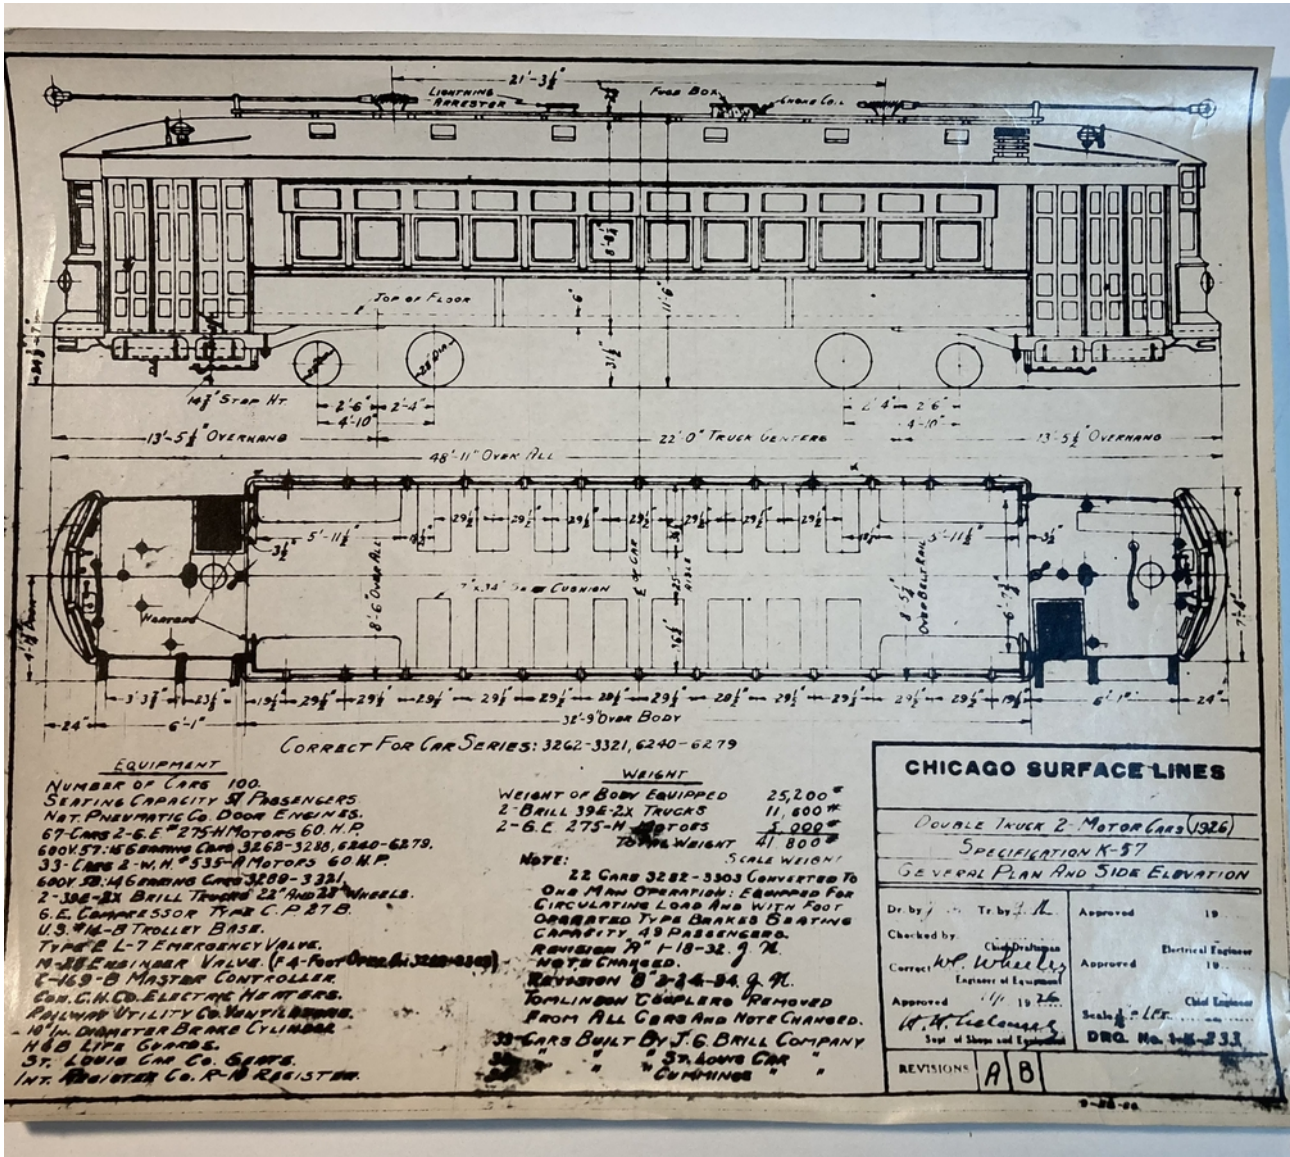 21'-3½"
LIGHTNING
ARRESTER
FUSE BOX
CHOKE COIL
8'-8½"
TOP OF FLOOR
6"
11'-6"
31½"
28" DIA.
14⅞" STEP HT.
2'-6" 2'-4"
4'-10"
2'-4" 2'-6"
4'-10"
13'-5½" OVERHANG
22'-0" TRUCK CENTERS
13'-5½" OVERHANG
48'-11" OVER ALL
29½" 29½" 29½" 29½" 29½" 29½" 29½"
3½" 5'-11½"
5'-11½" 3½"
8'-6" OVER ALL
℄ OF CAR
25"
AISLE
36½"
8'-5¼"
OVER BELT RAIL
6'-7¾"
CUSHION
3'-3¾" 23½" 19½" 29½" 29½" 29½" 29½" 29½" 29½" 29½" 29½" 29½" 29½" 29½" 29½" 19½"
6'-1" 24"
24" 6'-1"
32'-9" OVER BODY
CORRECT FOR CAR SERIES: 3262-3321, 6240-6279
EQUIPMENT
NUMBER OF CARS 100.
SEATING CAPACITY 57 PASSENGERS
NAT. PNEUMATIC CO. DOOR ENGINES.
67-CARS 2-G.E. #275-H MOTORS 60. H.P.
600V. 57:15 GEARING CARS 3262-3288, 6240-6279.
33-CARS 2-W.H. #535-A MOTORS 60 H.P.
600V. 58:14 GEARING CARS 3289-3321
2-39E-2X BRILL TRUCKS 22" AND 28" WHEELS.
G.E. COMPRESSOR TYPE C.P. 27 B.
U.S. #14-B TROLLEY BASE.
TYPE E L-7 EMERGENCY VALVE.
M-28 ENGINEER VALVE. (F4-FOOT
C-169-B MASTER CONTROLLER
CON. C.H. CO. ELECTRIC HEATERS.
RAILWAY UTILITY CO. VENTILATORS.
10" IN. DIAMETER BRAKE CYLINDER
H&B LIFE GUARDS.
ST. LOUIS CAR CO. SEATS.
INT. REGISTER CO. R-10 REGISTER.
WEIGHT
WEIGHT OF BODY EQUIPPED 25,200#
2-BRILL 39E-2X TRUCKS 11,600#
2-G.E. 275-H MOTORS 5,000#
TOTAL WEIGHT 41,800#
NOTE: SCALE WEIGHT
22 CARS 3282-3303 CONVERTED TO
ONE MAN OPERATION: EQUIPPED FOR
CIRCULATING LOAD AND WITH FOOT
OPERATED TYPE BRAKES SEATING
CAPACITY 49 PASSENGERS.
REVISION "A" 1-18-32.
NOTE CHANGED.
REVISION "B" 2-24-34.
TOMLINSON COUPLERS REMOVED
FROM ALL CARS AND NOTE CHANGED.
33-CARS BUILT BY J.G. BRILL COMPANY
" " " ST. LOUIS CAR "
" " " CUMMINGS " "
CHICAGO SURFACE LINES
DOUBLE TRUCK 2-MOTOR CARS (1926)
SPECIFICATION K-57
GENERAL PLAN AND SIDE ELEVATION
Dr. by Tr. by
Checked by
Chief Draftsman
Correct W.C. Wheeler
Engineer of Equipment
Approved 1926
Supt. of Shops and Equipment
Approved 19
Electrical Engineer
Approved 19
Chief Engineer
Scale
DRG. No.
REVISIONS A B